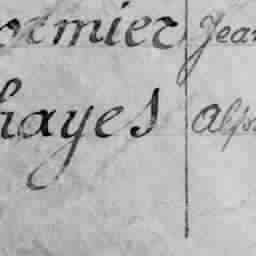 ormier Jean
hayes Alph